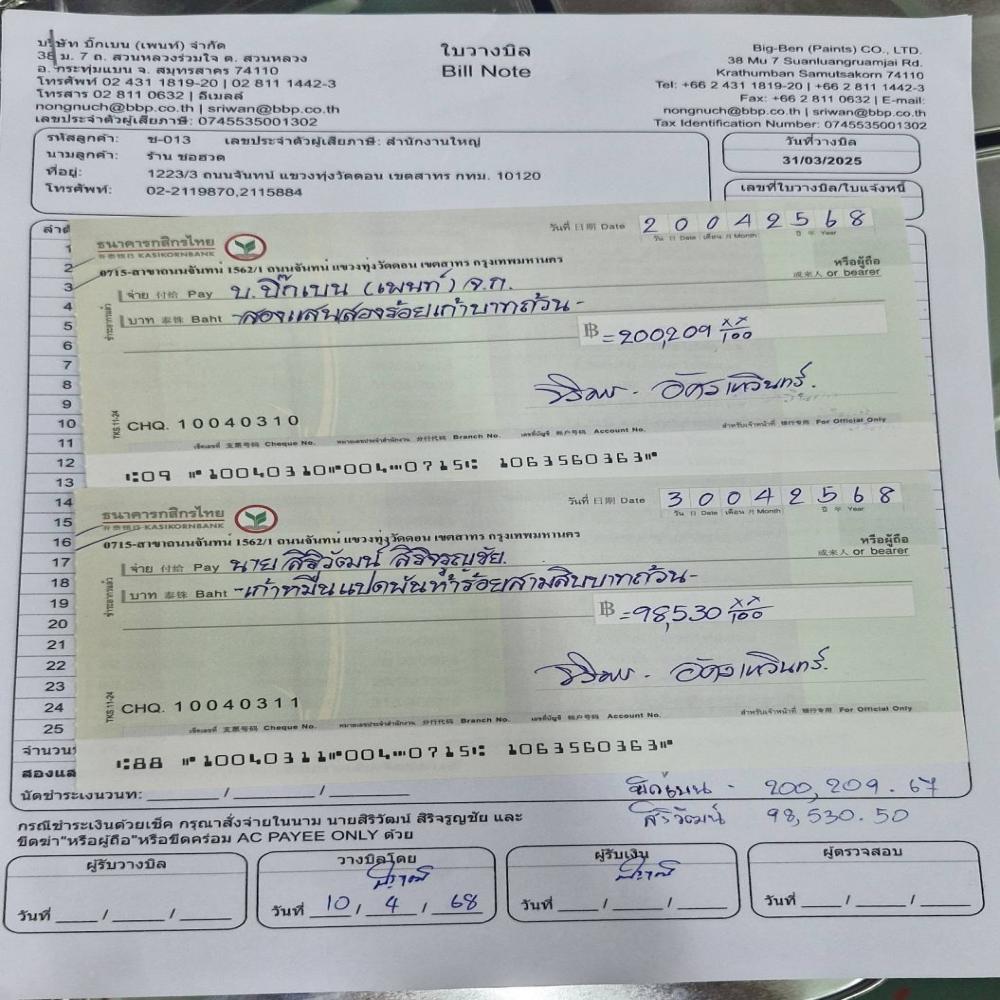 บริษัท บิ๊กเบน (เพนท์) จำกัด
38 ม. 7 ถ. สวนหลวงร่วมใจ ต. สวนหลวง
อ. กระทุ่มแบน จ. สมุทรสาคร 74110
โทรศัพท์ 02 431 1819-20 | 02 811 1442-3
โทรสาร 02 811 0632 | อีเมลล์
nongnuch@bbp.co.th | sriwan@bbp.co.th
เลขประจำตัวผู้เสียภาษี: 0745535001302
ใบวางบิล
Bill Note
Big-Ben (Paints) CO., LTD.
38 Mu 7 Suanluangruamjai Rd.
Krathumban Samutsakorn 74110
Tel: +66 2 431 1819-20 | +66 2 811 1442-3
Fax: +66 2 811 0632 | E-mail:
nongnuch@bbp.co.th | sriwan@bbp.co.th
Tax Identification Number: 0745535001302
รหัสลูกค้า: ช-013 เลขประจำตัวผู้เสียภาษี: สำนักงานใหญ่
นามลูกค้า: ร้าน ชอฮวด
ที่อยู่: 1223/3 ถนนจันทน์ แขวงทุ่งวัดดอน เขตสาทร กทม. 10120
โทรศัพท์: 02-2119870,2115884
วันที่วางบิล
31/03/2025
เลขที่ใบวางบิล/ใบแจ้งหนี้
1
2
3
4
5
6
7
8
9
10
11
12
13
14
15
16
17
18
19
20
21
22
23
24
25
ธนาคารกสิกรไทย
开泰银行 KASIKORNBANK
วันที่ 日期 Date 20042568
วัน 日 Date เดือน 月 Month ปี 年 Year
0715-สาขาถนนจันทน์ 1562/1 ถนนจันทน์ แขวงทุ่งวัดดอน เขตสาทร กรุงเทพมหานคร
หรือผู้ถือ
或来人 or bearer
จ่าย 付给 Pay บ.บิ๊กเบน (เพนท์) จ.ก.
บาท 泰铢 Baht -สองแสนสองร้อยเก้าบาทถ้วน-
฿ =200,209 xx/100
TKS 11-24
CHQ. 10040310
เช็คเลขที่ 支票号码 Cheque No. หมายเลขประจำสำนักงาน 分行代码 Branch No. เลขที่บัญชี 帐户号码 Account No. สำหรับเจ้าหน้าที่ 银行专用 For Official Only
⑆09 ⑈10040310⑈004⑉0715⑆ 1063560363⑈
ธนาคารกสิกรไทย
开泰银行 KASIKORNBANK
วันที่ 日期 Date 30042568
วัน 日 Date เดือน 月 Month ปี 年 Year
0715-สาขาถนนจันทน์ 1562/1 ถนนจันทน์ แขวงทุ่งวัดดอน เขตสาทร กรุงเทพมหานคร
หรือผู้ถือ
或来人 or bearer
จ่าย 付给 Pay นาย สิริวัฒน์ สิริจรูญชัย
บาท 泰铢 Baht -เก้าหมื่นแปดพันห้าร้อยสามสิบบาทถ้วน-
฿ =98,530 xx/100
TKS 11-24
CHQ. 10040311
เช็คเลขที่ 支票号码 Cheque No. หมายเลขประจำสำนักงาน 分行代码 Branch No. เลขที่บัญชี 帐户号码 Account No. สำหรับเจ้าหน้าที่ 银行专用 For Official Only
⑆88 ⑈10040311⑈004⑉0715⑆ 1063560363⑈
จำนวน
สองแส
นัดชำระเงินวันที่: ______ / ______ / ______
บิ๊กเบน - 200,209.67
สิริวัฒน์ 98,530.50
กรณีชำระเงินด้วยเช็ค กรุณาสั่งจ่ายในนาม นายสิริวัฒน์ สิริจรูญชัย และ
ขีดฆ่า"หรือผู้ถือ"หรือขีดคร่อม AC PAYEE ONLY ด้วย
ผู้รับวางบิล
วันที่ ____ / ____ / ____
วางบิลโดย
วันที่ 10 / 4 / 68
ผู้รับเงิน
วันที่ ____ / ____ / ____
ผู้ตรวจสอบ
วันที่ ____ / ____ / ____